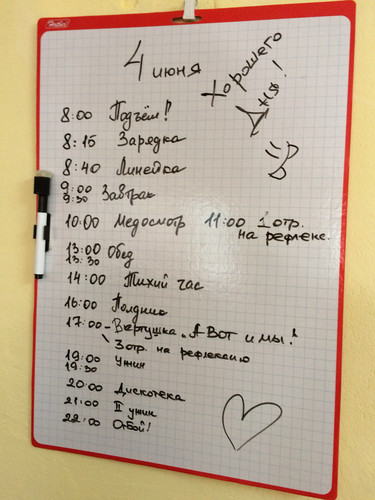 Hatber
4 июня
Хорошего
Дня!
8:00 Подъём!
8:15 Зарядка
8:40 Линейка
9:00
9:30 Завтрак
10:00 Медосмотр 11:00 1 отр.
на рефлекс.
13:00 Обед
13:30
14:00 Тихий час
16:00 Полдник
17:00 - Вертушка „А ВОТ и мы!"
3 отр. на рефлексию
19:00 Ужин
19:30
20:00 Дискотека
21:00 II ужин
22:00 Отбой!